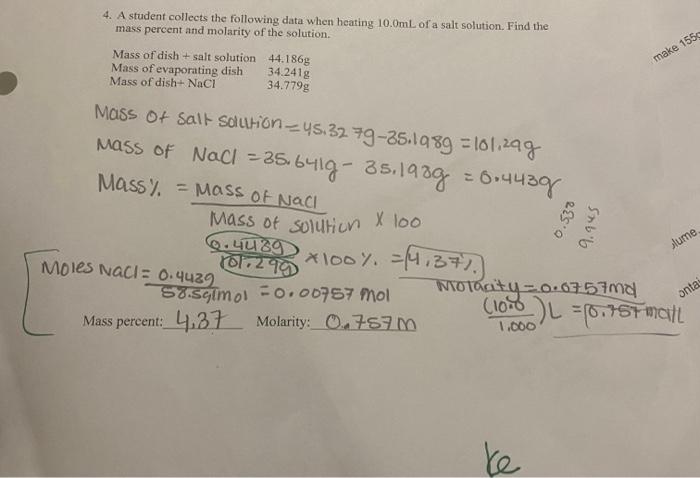 4. A student collects the following data when heating 10.0mL of a salt solution. Find the
mass percent and molarity of the solution.
make 155
Mass of dish + salt solution 44.186g
Mass of evaporating dish 34.241g
Mass of dish+ NaCl 34.779g
Mass of salt solution = 45.3279g - 35.198g = 101.29g
Mass of NaCl = 35.641g - 35.198g = 0.443g
Mass % = Mass of NaCl
Mass of solution × 100
0.538
9.945
0.443g
101.29g × 100% = 4.37%
Moles NaCl = 0.443g
58.5g/mol = 0.00757 mol
Molarity = 0.0757 mol
(10.0
1.000) L = 0.757 mol/L
Mass percent: 4.37 Molarity: 0.757 M
lume
onta
Ke